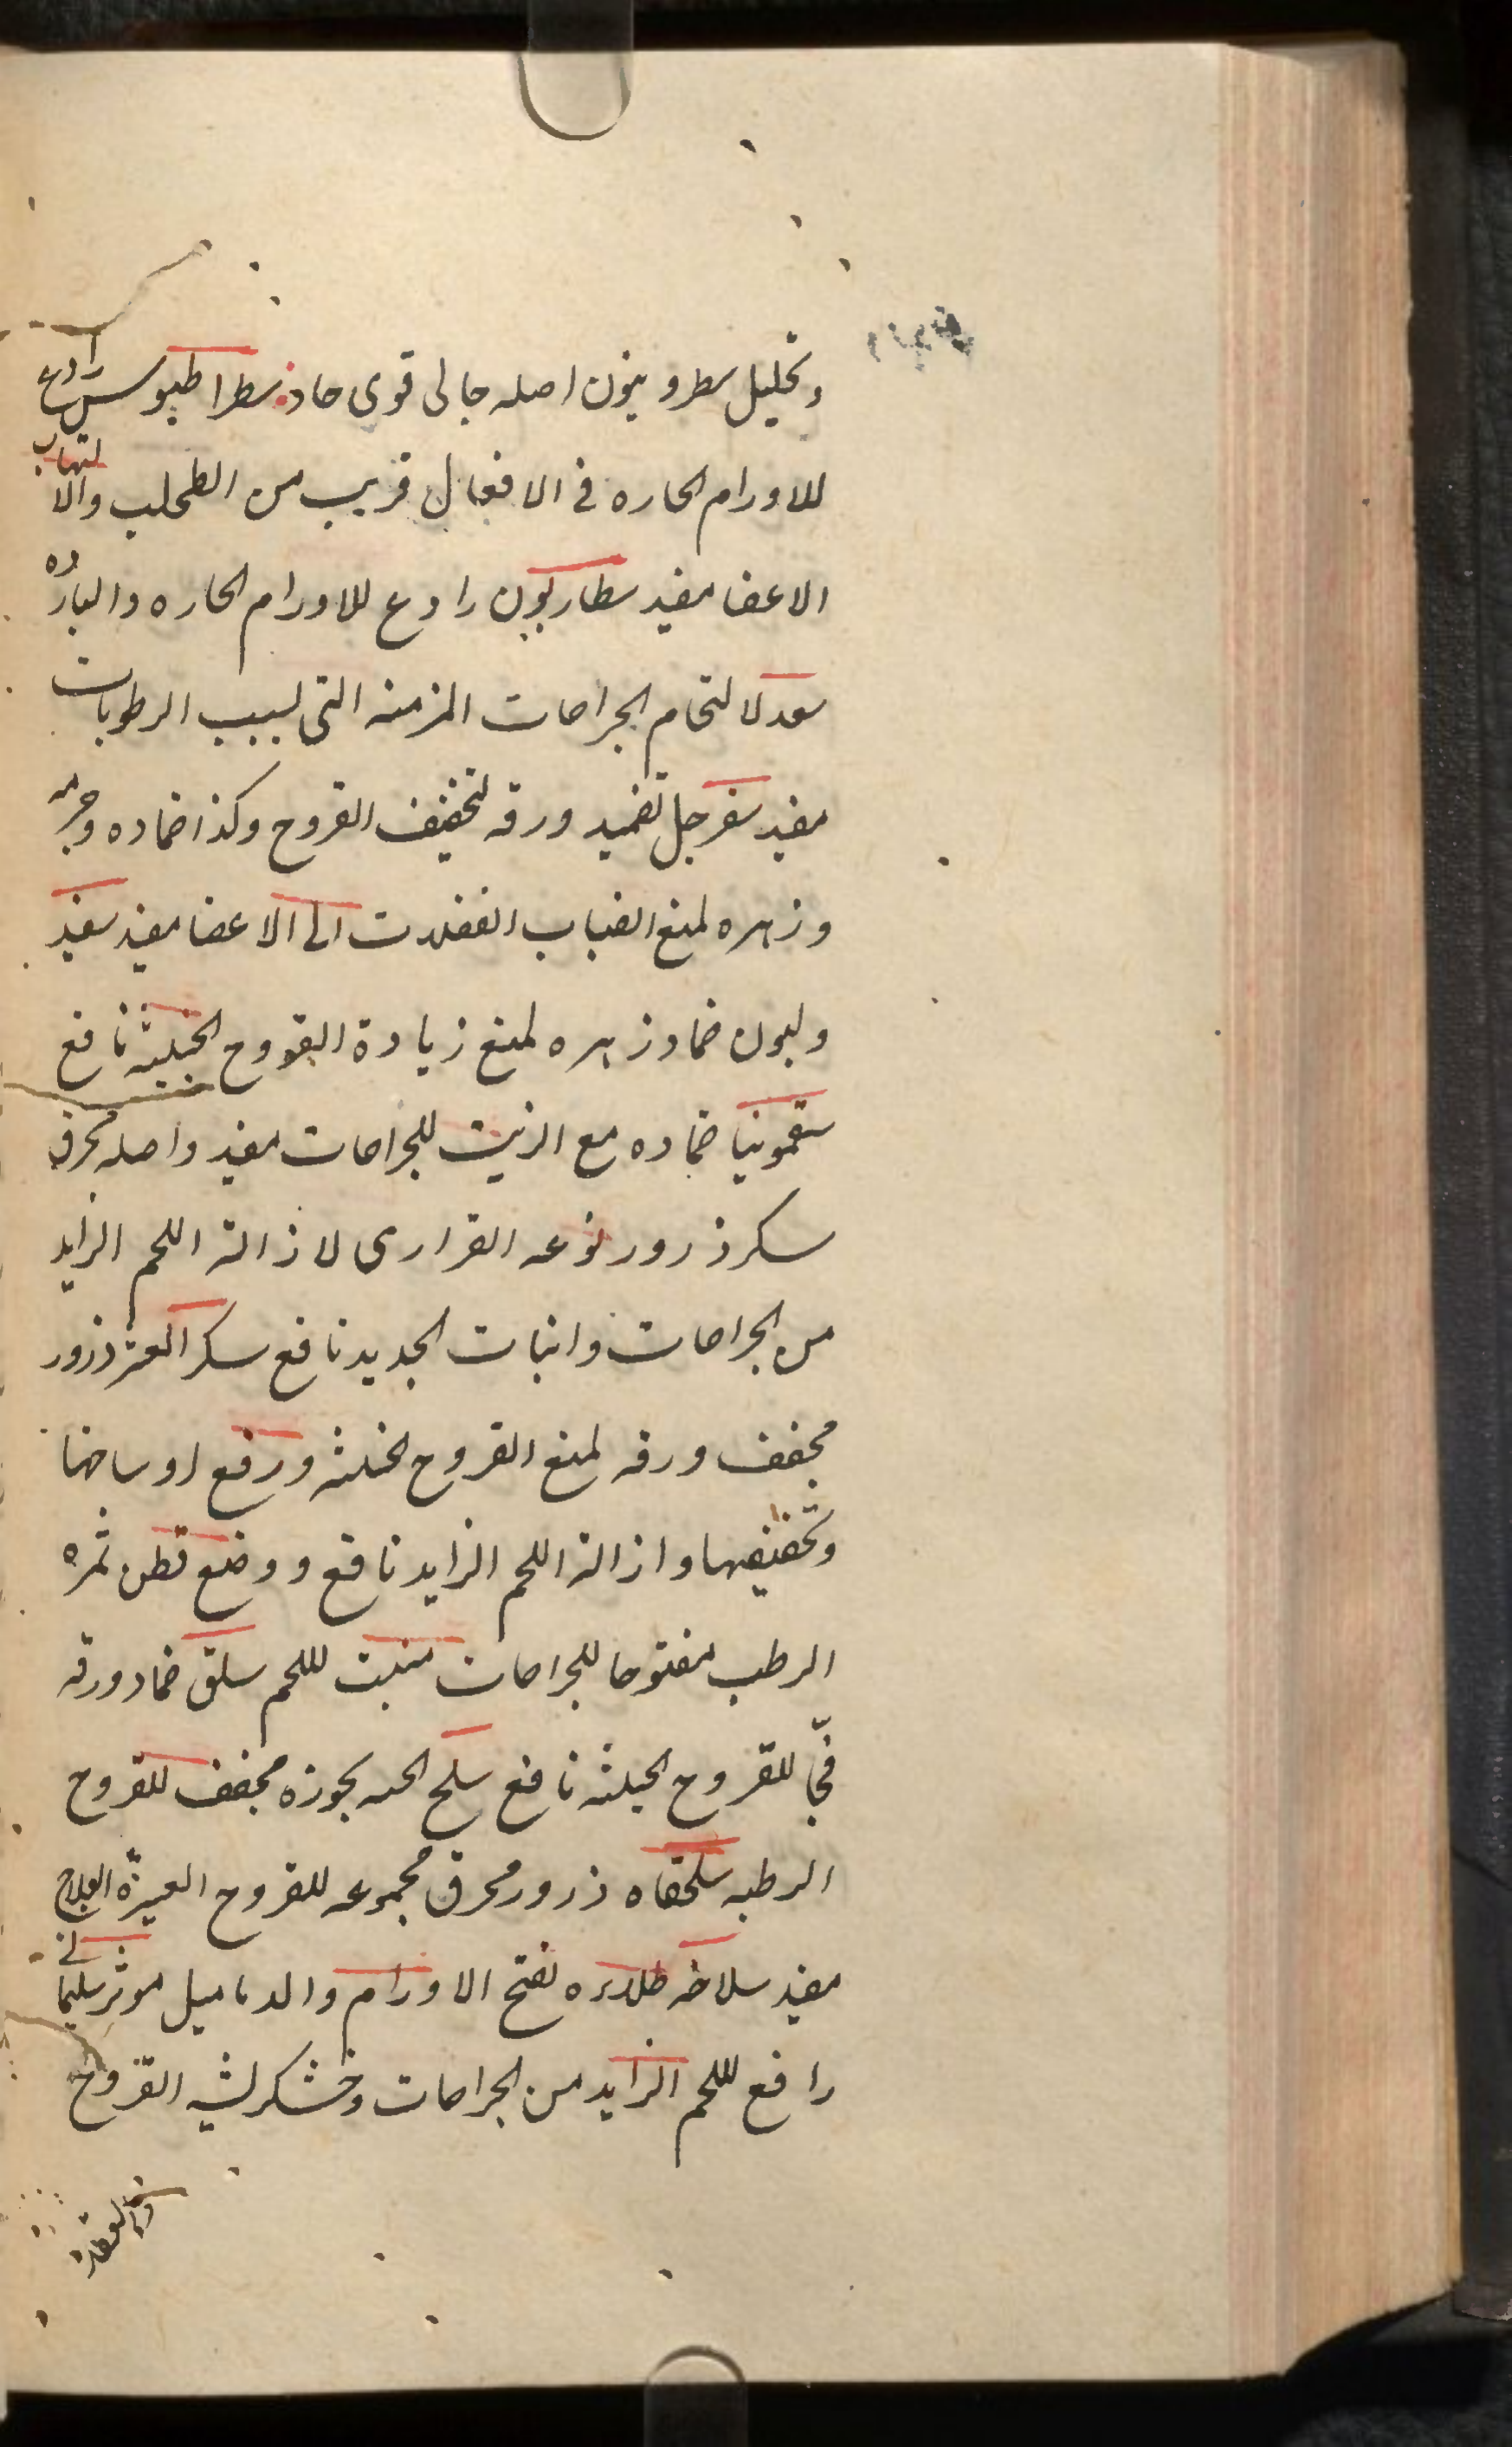 وتحليل سطرونيون اصله جالى قوى حاد سطراطيوس رادع
للاورام الحاره فى الافعال قريب من الطحلب والالتهاب
الاعضا مفيد سطاريون رادع للاورام الحاره والبارده
سعد لالتحام الجراحات المزمنه التى لسبب الرطوبات
مفيد سفرجل تضميد ورقه لتجفيف القروح وكذا ضماده وجرمه
وزهره لمنع انصباب الفضلات الى الاعضا مفيد سفيد
وليون ضماد زهره لمنع زيادة القروح الخبيثه نافع
سقمونيا ضماده مع الزيت للجراحات مفيد واصله محرق
سكر ذرور نوعه القرارى لازالة اللحم الزايد
من الجراحات وانبات الجديد نافع سكر العشر ذرور
مجفف ورقه لمنع القروح الخبيثه ورفع اوساخها
وتجفيفها وازالة اللحم الزايد نافع ووضع قطن ثمره
الرطب مفتوحا للجراحات منبت للحم سلق ضماد ورقه
فى للقروح الخبيثه نافع سلخ الحيه بجوزه مجفف للقروح
الرطبه سلحفاه ذرور محرق مجموعه للقروح العسيرة العلاج
مفيد سلاخه طلاءه لفتح الاورام والدماميل موثر سليمانى
رافع للحم الزايد من الجراحات وخشكريشه القروح